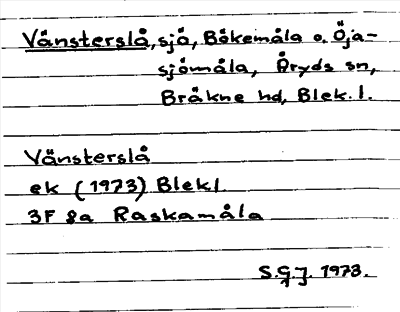 Vänsterslå, sjö, Bökemåla o. Öja-
sjömåla, Åryds sn,
Bräkne hd, Blek. l.
Vänsterslå
ek (1973) Blek l
3F 8a Raskamåla
S.G.J. 1973.